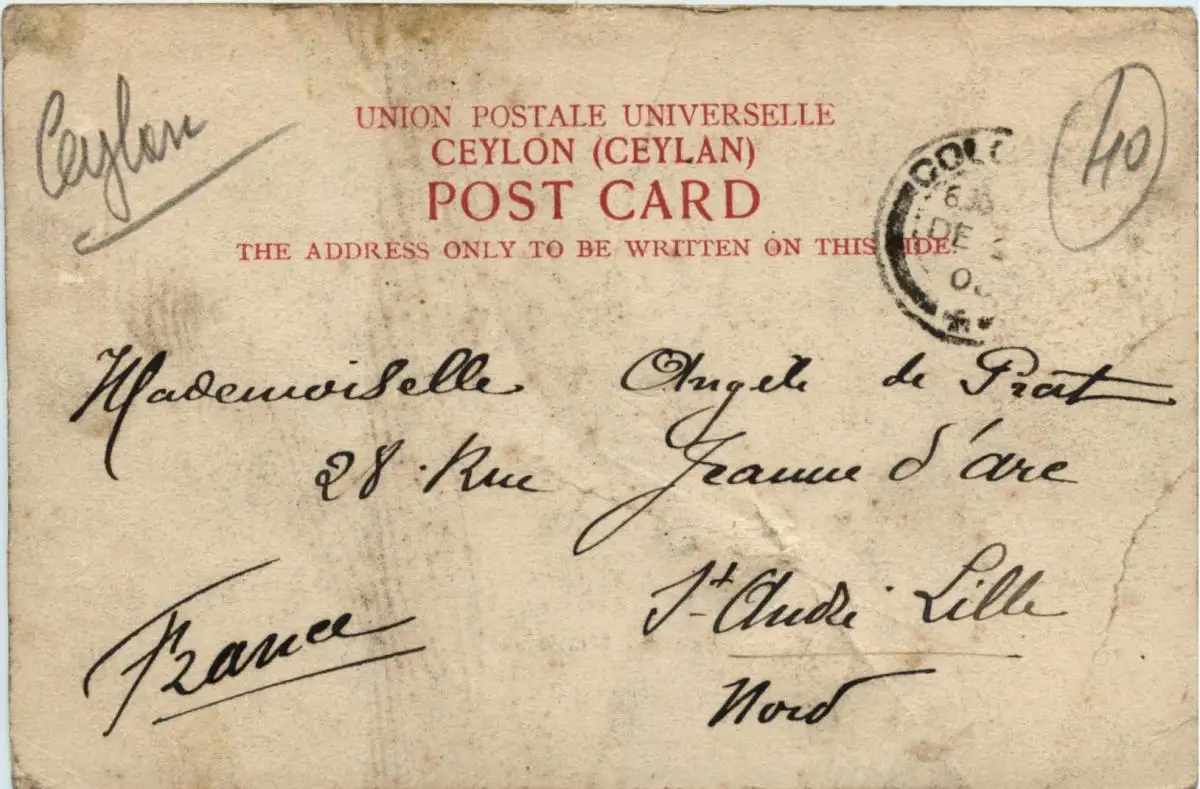 Ceylon
40
UNION POSTALE UNIVERSELLE
CEYLON (CEYLAN)
POST CARD
THE ADDRESS ONLY TO BE WRITTEN ON THIS SIDE
COLO
DE
Mademoiselle Angèle de Prat
28 Rue Jeanne d'Arc
St André Lille
Nord
France